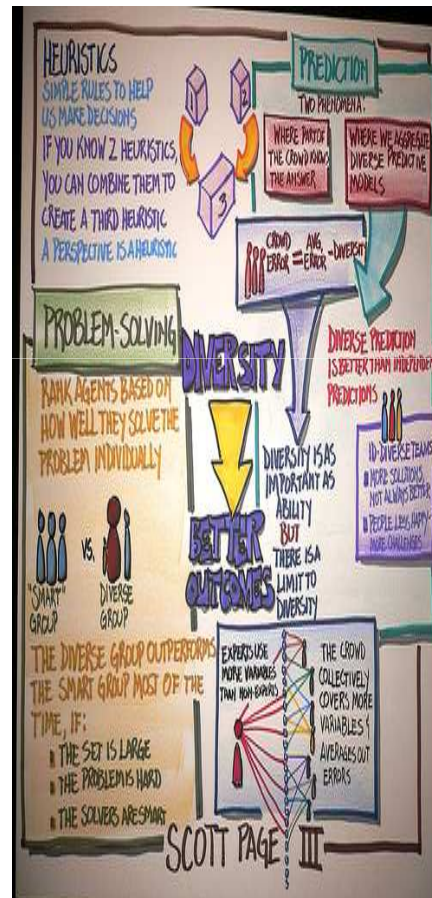 HEURISTICS
SIMPLE RULES TO HELP
US MAKE DECISIONS
IF YOU KNOW 2 HEURISTICS,
YOU CAN COMBINE THEM TO
CREATE A THIRD HEURISTIC
A PERSPECTIVE IS A HEURISTIC
1
2
3
PREDICTION
TWO PHENOMENA:
WHERE PART OF
THE CROWD KNOWS
THE ANSWER
WHERE WE AGGREGATE
DIVERSE PREDICTIVE
MODELS
CROWD
ERROR
=
AVG.
ERROR
- DIVERSITY
DIVERSE PREDICTION
IS BETTER THAN INDEPENDE
PREDICTIONS
PROBLEM-SOLVING
RANK AGENTS BASED ON
HOW WELL THEY SOLVE THE
PROBLEM INDIVIDUALLY
"SMART"
GROUP
VS.
DIVERSE
GROUP
THE DIVERSE GROUP OUTPERFORMS
THE SMART GROUP MOST OF THE
TIME, IF:
THE SET IS LARGE
THE PROBLEM IS HARD
THE SOLVERS ARE SMART
DIVERSITY
BETTER
OUTCOMES
DIVERSITY IS AS
IMPORTANT AS
ABILITY
BUT
THERE IS A
LIMIT TO
DIVERSITY
ID-DIVERSE TEAMS
MORE SOLUTIONS,
NOT ALWAYS BETTER
PEOPLE LESS HAPPY
MORE CHALLENGES
EXPERTS USE
MORE VARIABLES
THAN NON-EXPERTS
THE CROWD
COLLECTIVELY
COVERS MORE
VARIABLES &
AVERAGES OUT
ERRORS
SCOTT PAGE III